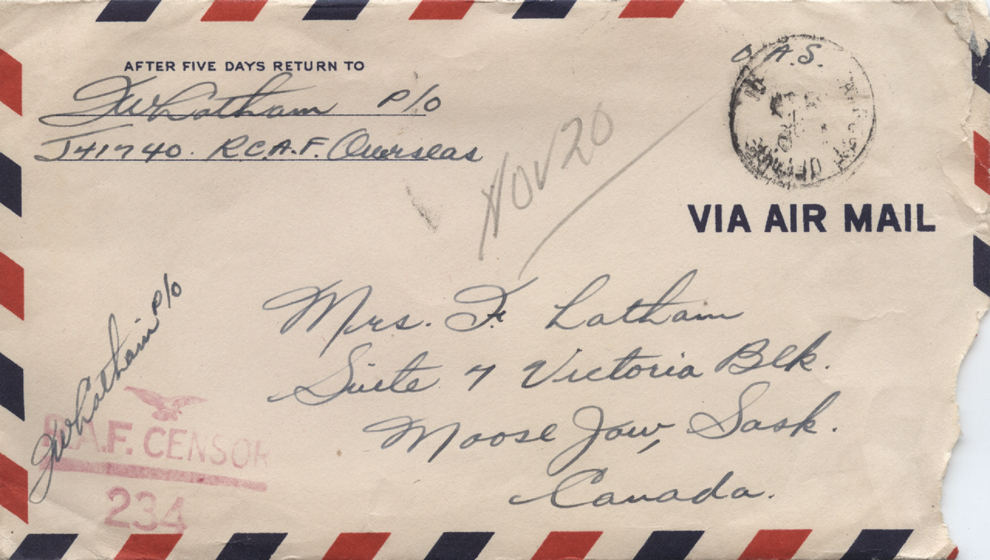 O A.S.
AFTER FIVE DAYS RETURN TO
FWLatham P/O
J41740. R.C.A.F. Overseas
NOV 20
VIA AIR MAIL
Mrs. F. Latham
Suite 7 Victoria Blk.
Moose Jaw, Sask.
Canada.
FWLatham P/O
R.A.F. CENSOR
234